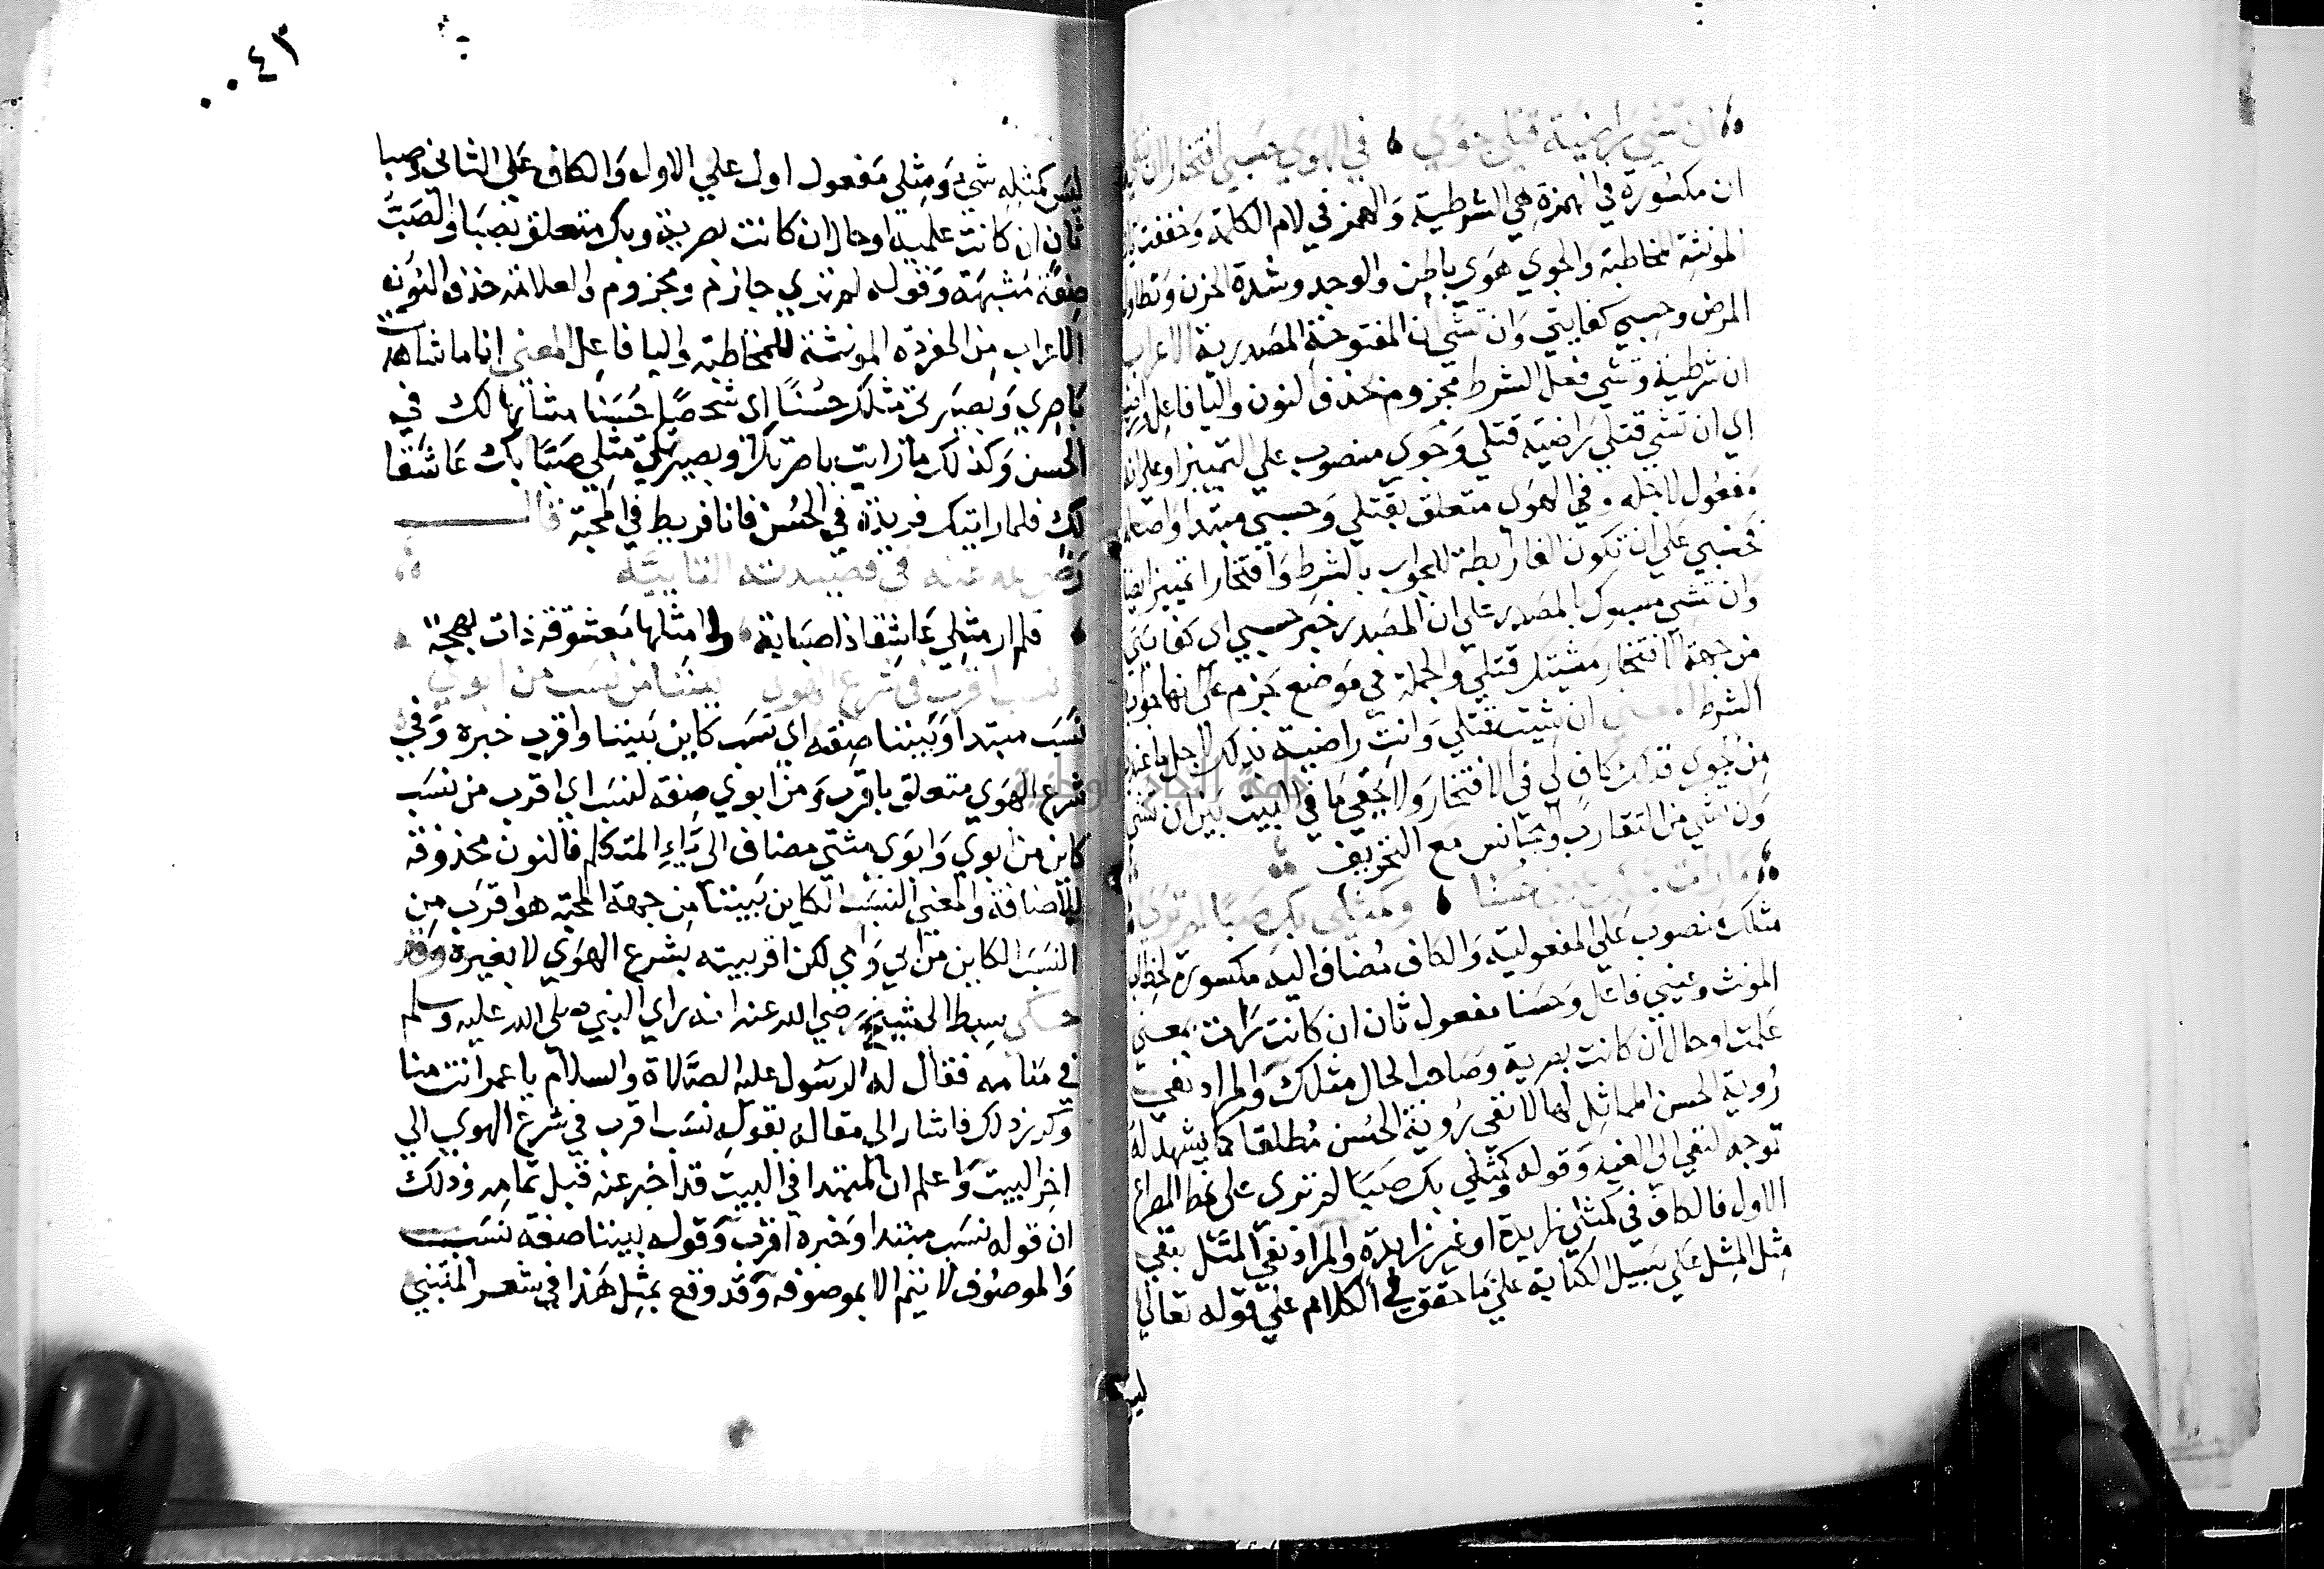 ان تشي راضية قتلي جوي في الهوي حسبي افتخارا ان تشي
ان مكسورة في الهمزة هي الشرطية والهمز في لام الكلمة وخففت
المونثة المخاطبة والجوي هوي باطن والوجد وشدة الحزن وتطاول
المرض وحسبي كفايتي وان تشي ان المفتوحة المصدرية الاعراب
ان شرطية وتشي فعل الشرط مجزوم بحذف النون واليا فاعل
اي ان تشي قتلي راضية قتلي وجوي منصوب علي التمييز او علي انه
مفعول لاجله وفي الهوي متعلق بقتلي وحسبي مبتدا واصله
فحسبي علي ان تكون الفا رابطة للجواب بالشرط وافتخارا تمييز ايضا
وان تشي مسبوك بالمصدر علي ان المصدر خبر حسبي اي كفايتي
من جهة الافتخار مشيتك قتلي والجملة في موضع جزم علي انها جواب
الشرط المعني ان شيت قتلي وانت راضية بذلك لاجل ما عندي
من الجوي فذلك كاف لي في الافتخار ولا يخفي ما في البيت بين ان تشي
وان تشي من التقارب والتجانس مع التحريف
ما رات مثلك عيني حسنا وكمثلي بك صبا لم تري
مثلك منصوب علي المفعولية والكاف مضاف اليه مكسورة لخطاب
المونث وعيني فاعل وحسنا مفعول ثان ان كانت رات بمعني
علمت او حال ان كانت بصرية وصاحب الحال مثلك والمراد نفي
روية الحسن المماثل لها لا نفي روية الحسن مطلقا كما يشهد له
توجه النفي الي القيد وقوله وكمثلي بك صبا لم تري علي نمط المصراع
الاول فالكاف في كمثلي زايدة او غير زايدة والمراد نفي المثل بنفي
مثل المثل علي سبيل الكناية علي ما حقق في الكلام علي قوله تعالي
ليس
٠٠٤٣
ليس كمثله شي ومثلي مفعول اول علي الاول والكاف علي الثاني وصبا
ثان ان كانت علمية او حال ان كانت بصرية وبك متعلق بصبا والصب
صفة مشبهة وقوله لم تري جازم ومجزوم والعلامة حذف النون
الاعراب من المفردة المونثة للمخاطبة واليا فاعل المعني انا ما شاهد
ناصري وبصيرتي مثلك حسنا اي شخصا حسنا مشابها لك في
الحسن وكذلك ما رايت باصرتك وبصيرتك مثلي صبا بك عاشقا
لك فلما رايتك فريدة في الحسن فانا فريط في المحبة قال
رضي الله عنه في قصيدته التاييه
فلم ار مثلي عاشقا ذا صبابة ولا مثلها معشوقة ذات بهجة
نسب اقرب في شرع الهوي بيننا من نسب من ابوي
نسب مبتدا وبيننا صفه اي نسب كاين بيننا واقرب خبره وفي
شرع الهوي متعلق باقرب ومن ابوي صفه لنسب اي اقرب من نسب
كاين من ابوي وابوي مثني مضاف الي ياء المتكلم فالنون محذوفة
للاضافة والمعني النسب الكاين بيننا من جهة المحبة هو اقرب من
النسب الكاين من ابي وامي لكن اقربيته بشرع الهوي لا بغيره وقد
حكي سبط الشيخ رضي الله عنه انه راي النبي صلي الله عليه وسلم
في منامه فقال له الرسول عليه الصلاة والسلام يا عمر انت منا
وكرر ذلك فاشار الي مقاله بقوله نسب اقرب في شرع الهوي الي
اخر البيت واعلم ان المبتدا في البيت قد اخبر عنه قبل تمامه وذلك
ان قوله نسب مبتدا وخبره اقرب وقوله بيننا صفة نسب
والموصوف لا يتم الا بموصوفه وقد وقع بمثل هذا في شعر المتنبي